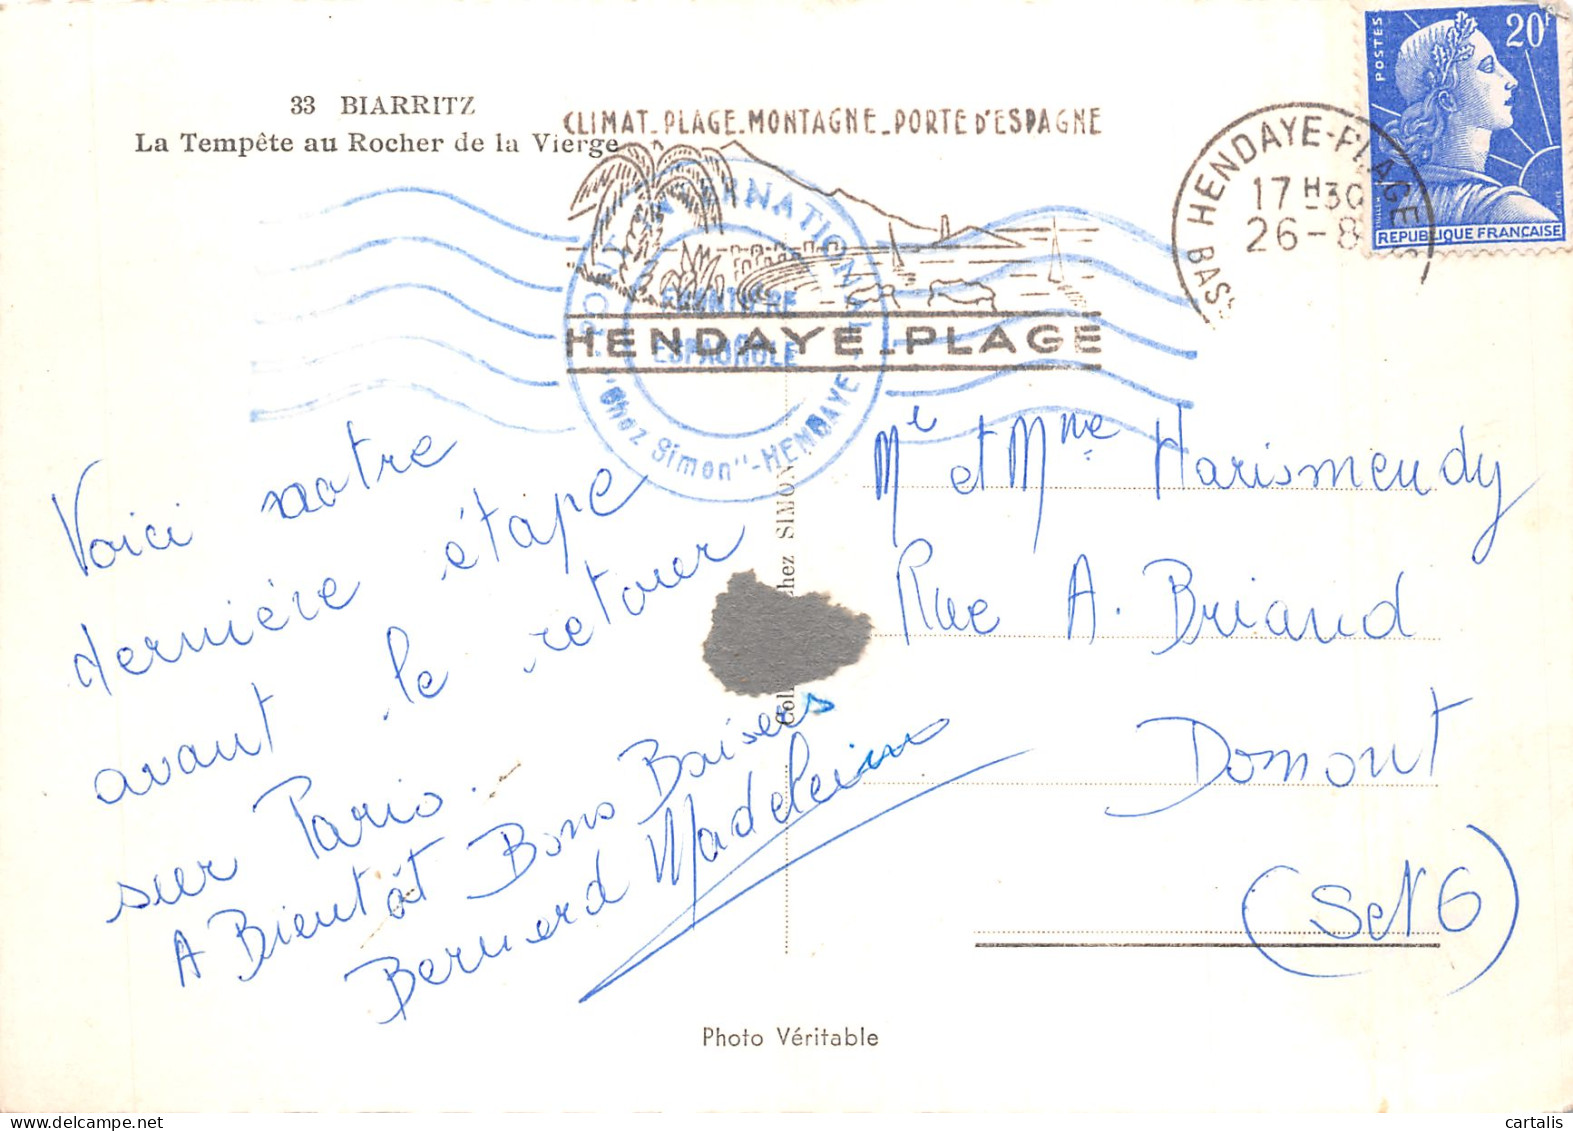 33 BIARRITZ
La Tempête au Rocher de la Vierge
CLIMAT_PLAGE_MONTAGNE_PORTE D'ESPAGNE
HENDAYE_PLAGE
PONT INTERNATIONAL
FRONTIERE
ESPAGNOLE
"Chez Simon"-HENDAYE
HENDAYE-PLAGE
17H30
26-8
BASS
POSTES
20F
REPUBLIQUE FRANÇAISE
Voici notre
dernière étape
avant le retour
sur Paris.
A Bientôt Bons Baisers
Bernard Madeleine
Chez SIMON
Mr et Mme Harismendy
Rue A. Briand
Domont
(S et O)
Photo Véritable
cartalis